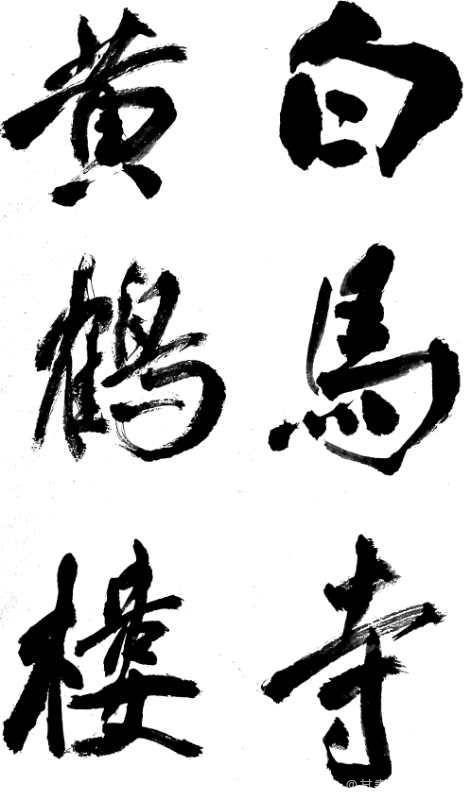 白馬寺
黄鶴樓